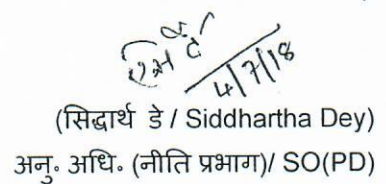 4/7/18
(सिद्धार्थ डे / Siddhartha Dey)
अनु॰ अधि॰ (नीति प्रभाग)/ SO(PD)